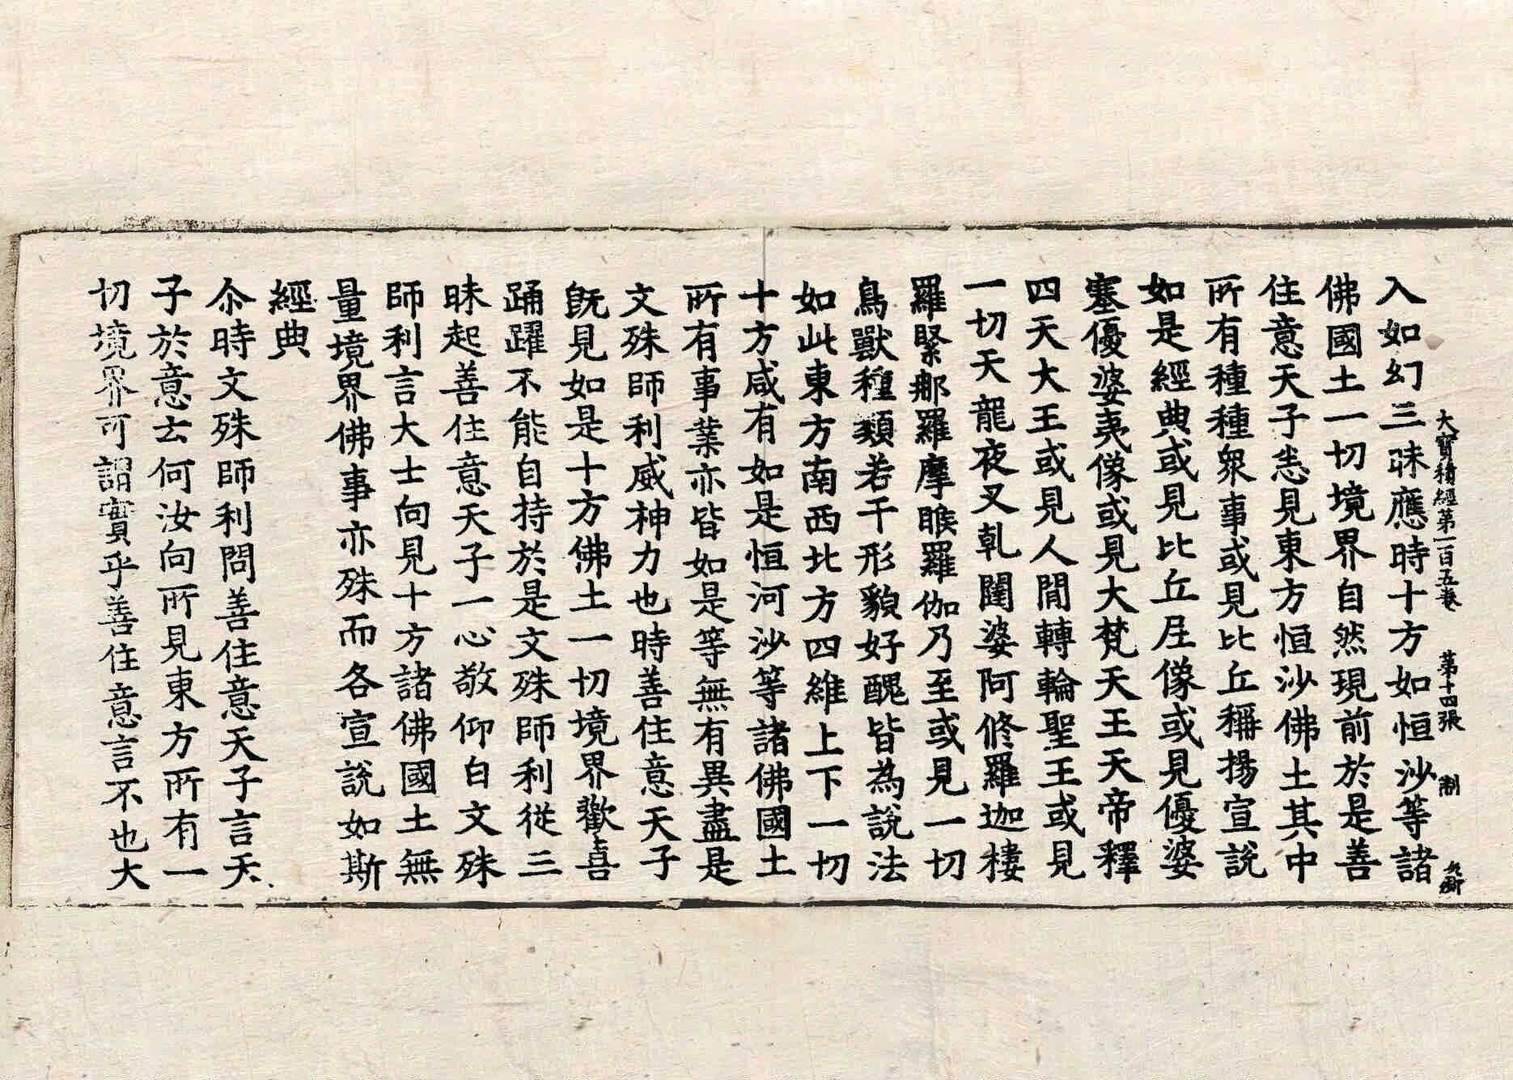 大寶積經第一百五卷　第十四張　制
入如幻三昧應時十方如恒沙等諸
佛國土一切境界自然現前於是善
住意天子悉見東方恒沙佛土其中
所有種種衆事或見比丘稱揚宣說
如是經典或見比丘尼像或見優婆
塞優婆夷像或見大梵天王天帝釋
四天大王或見人閒轉輪聖王或見
一切天龍夜叉乹闥婆阿修羅迦樓
羅緊那羅摩睺羅伽乃至或見一切
鳥獸種類若干形貌好醜皆為說法
如此東方南西北方四維上下一切
十方咸有如是恒河沙等諸佛國土
所有事業亦皆如是等無有異盡是
文殊師利威神力也時善住意天子
旣見如是十方佛土一切境界歡喜
踊躍不能自持於是文殊師利從三
昧起善住意天子一心敬仰白文殊
師利言大士向見十方諸佛國土無
量境界佛事亦殊而各宣說如斯
經典
尒時文殊師利問善住意天子言天
子於意云何汝向所見東方所有一
切境界可謂實乎善住意言不也大